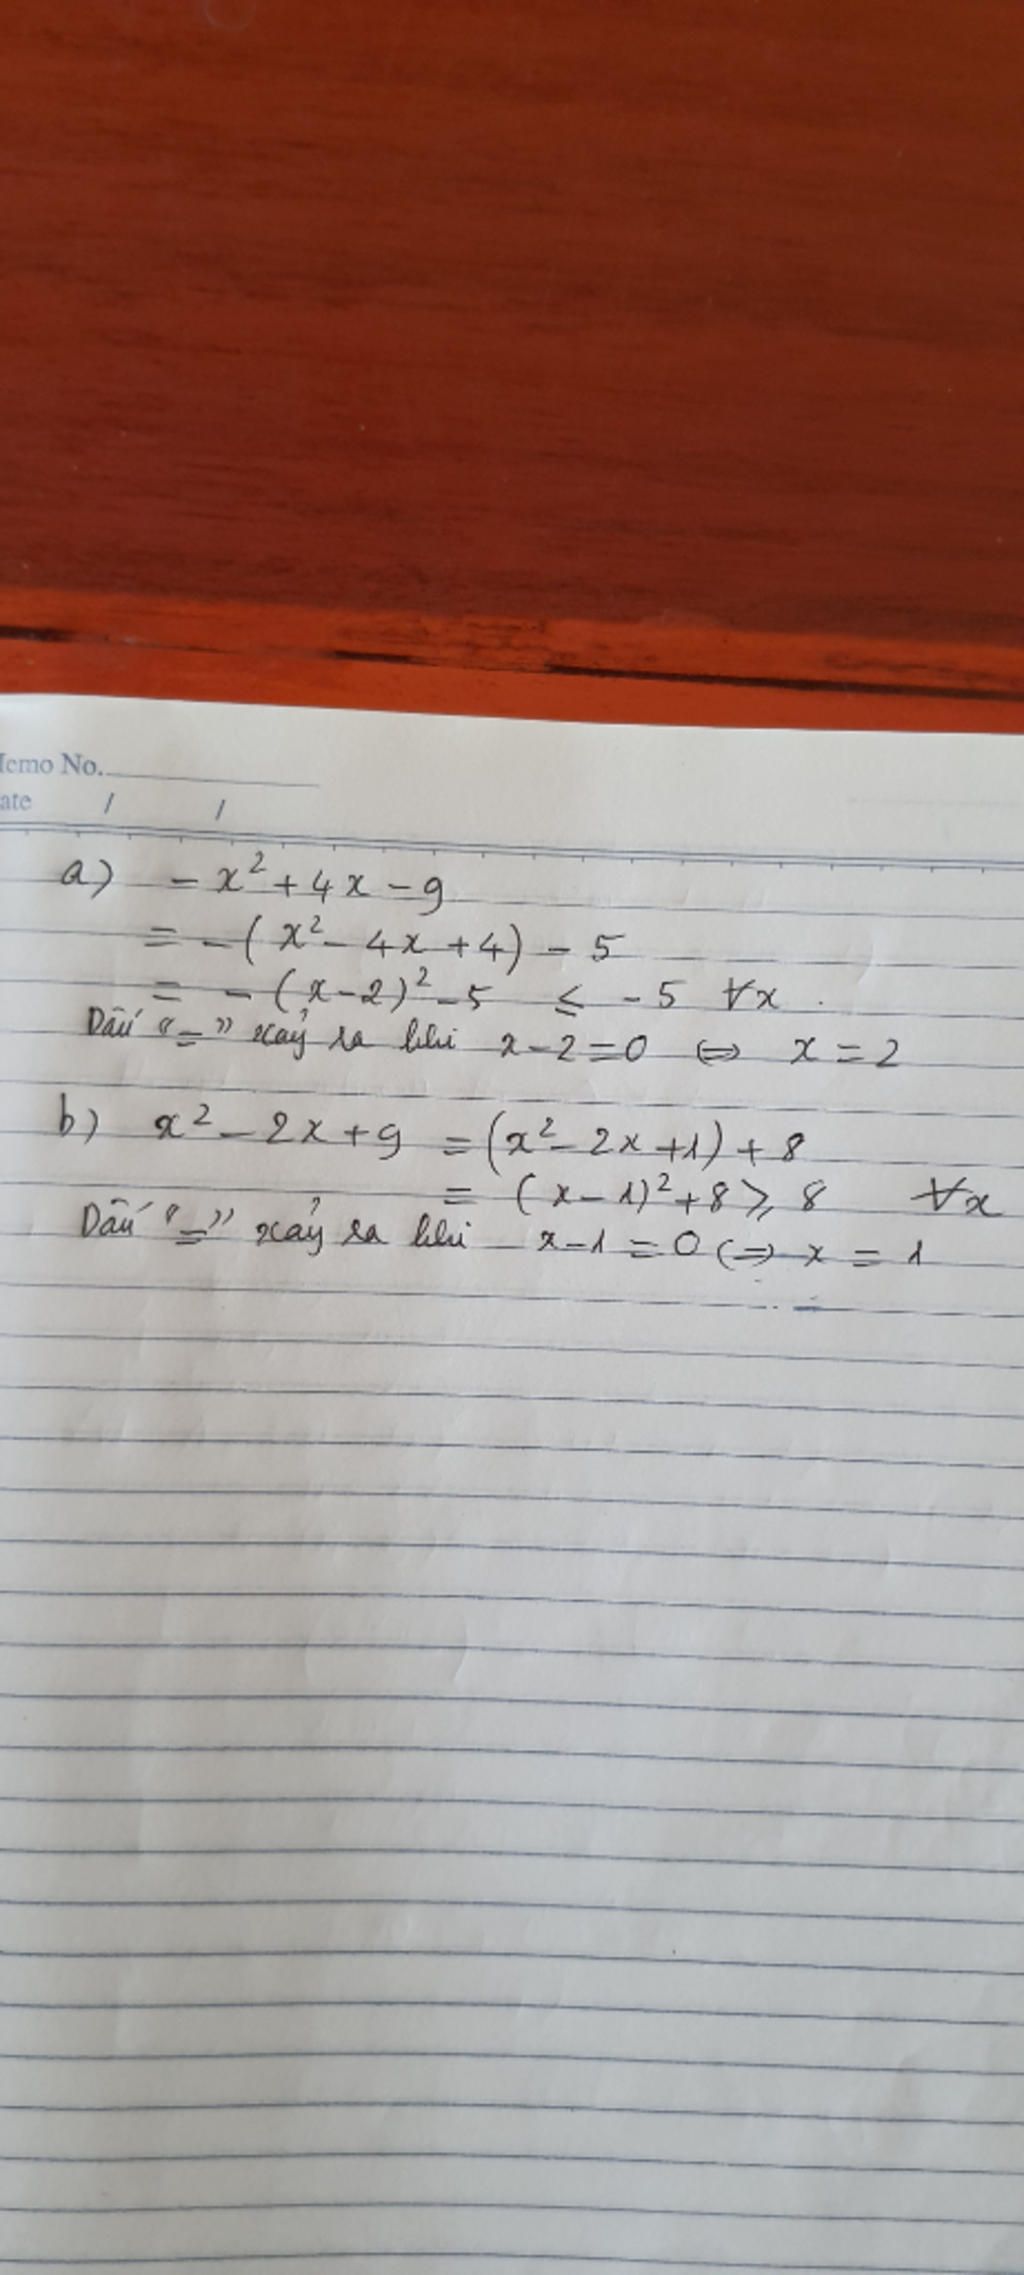 Memo No.
Date / /
a) - x² + 4x - 9
= - ( x² - 4x + 4) - 5
= - (x - 2)² - 5 ≤ - 5 ∀x .
Dấu "=" xảy ra khi x - 2 = 0 ⇔ x = 2
b) x² - 2x + 9 = (x² - 2x + 1) + 8
= (x - 1)² + 8 ≥ 8 ∀x
Dấu "=" xảy ra khi x - 1 = 0 ⇔ x = 1